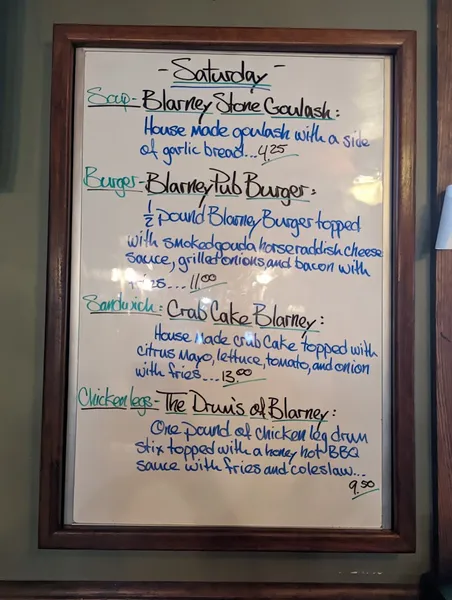 - Saturday -
Soup - Blarney Stone Goulash:
House Made goulash with a side
of garlic bread... 4.25
Burger - Blarney Pub Burger:
1/2 pound Blarney Burger topped
with smoked gouda horseraddish cheese
sauce, grilled onions and bacon with
fries.... 11.00
Sandwich: Crab Cake Blarney:
House Made crab Cake topped with
citrus mayo, lettuce, tomato, and onion
with fries.... 13.00
Chicken legs - The Drum's of Blarney:
One pound of chicken leg drum
stix topped with a honey hot BBQ
sauce with fries and coleslaw...
9.50